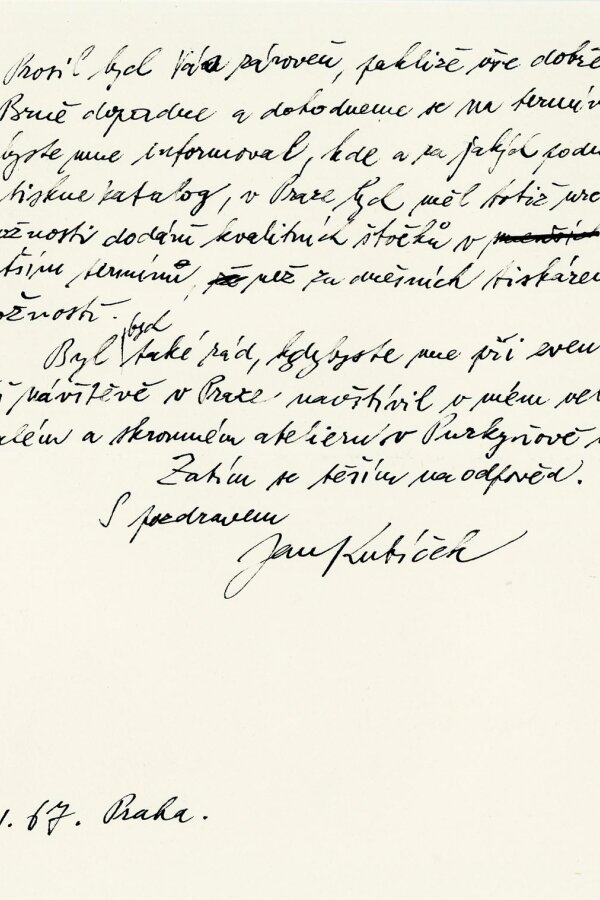 Prosil bych Vás zároveň, jakliže vše dobře
Brně dopadne a dohodneme se na termín
byste mne informoval, kde a za jakých podm
tiskne katalog, v Praze bych měl totiž
ožnosti dodání kvalitních štočků v
tším termínu, než za dnešních tiskáren
ožností.
Byl bych také rád, kdybyste mne při even
í návštěvě v Praze navštívil v mém vel
além a skromném atelieru v Purkyňově
Zatím se těším na odpověď.
S pozdravem
Jan Kubíček
. 67. Praha.